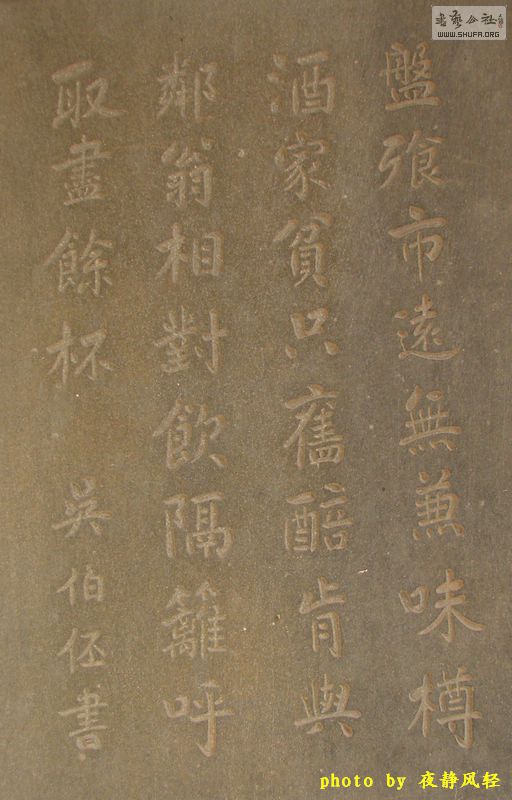 書藝公社
WWW.SHUFA.ORG
盤飧市遠無兼味樽
酒家貧只舊醅肯與
鄰翁相對飲隔籬呼
取盡餘杯 吳伯伾書
photo by 夜静风轻